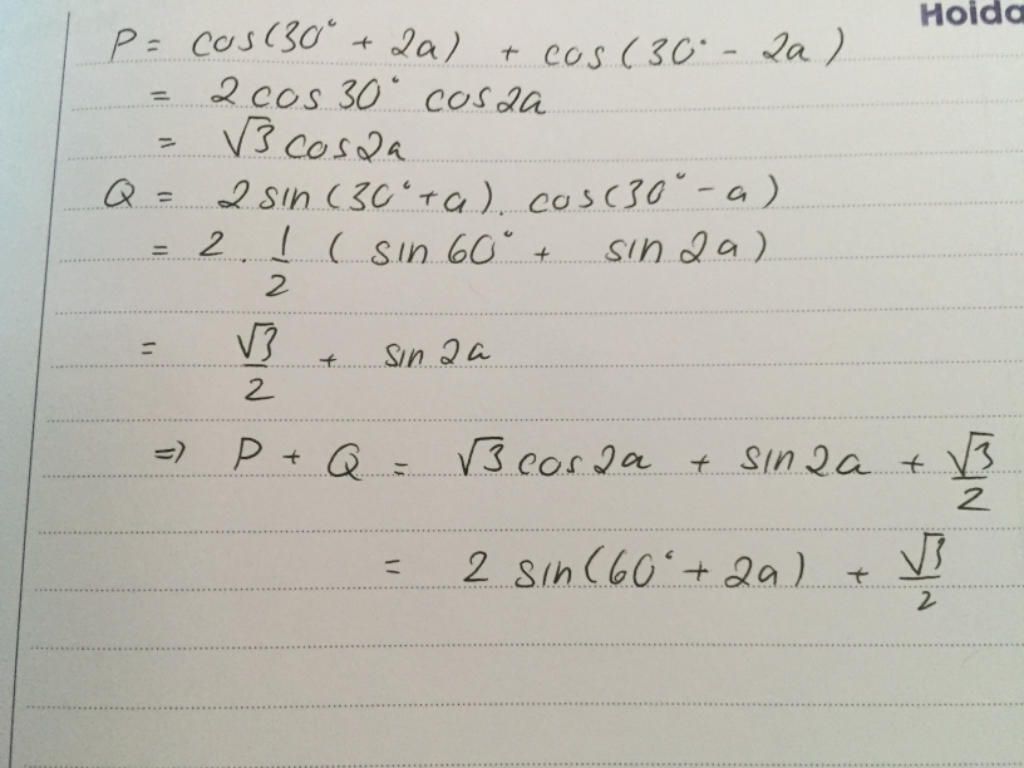 Hoida
P = cos(30° + 2a) + cos(30° - 2a)
= 2 cos30° cos2a
= √3 cos2a
Q = 2 sin(30° + a). cos(30° - a)
= 2 . 1/2 ( sin 60° + sin 2a)
= √3/2 + sin 2a
=> P + Q = √3 cos2a + sin2a + √3/2
= 2 sin(60° + 2a) + √3/2